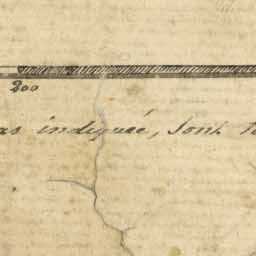 200
as indiqueé, sont t